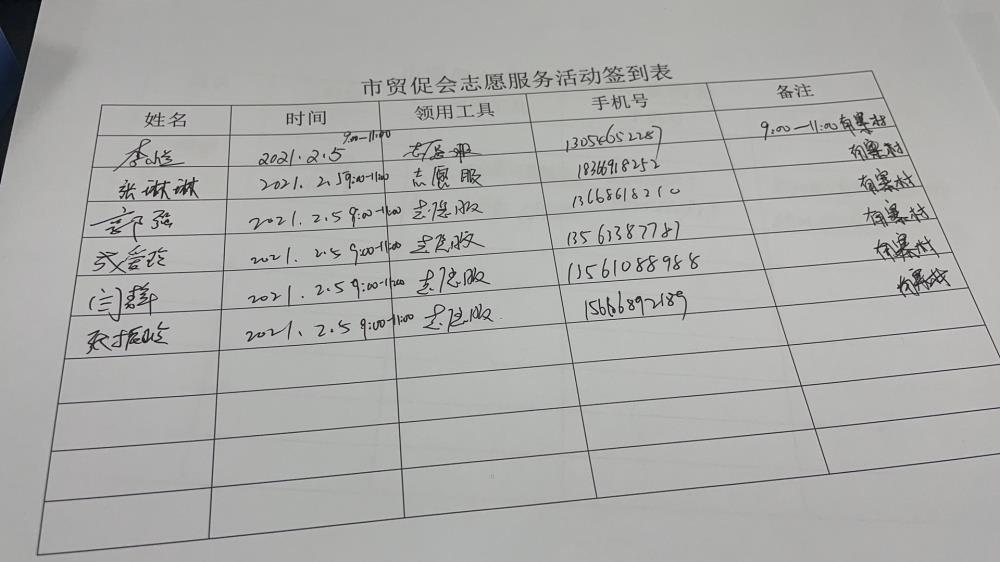 市贸促会志愿服务活动签到表
姓名 时间 领用工具 手机号 备注
李 2021.2.5 9:00-11:00 志愿服 13054652287 9:00-11:00有寨村
张琳琳 2021.2.5 9:00-11:00 志愿服 18366918252 有寨村
郭强 2021.2.5 9:00-11:00 志愿服 13668618210 有寨村
爱玲 2021.2.5 9:00-11:00 志愿服 13563387787 有寨村
闫群 2021.2.5 9:00-11:00 志愿服 13561088988 有寨村
张振 2021.2.5 9:00-11:00 志愿服 15666892189 有寨村